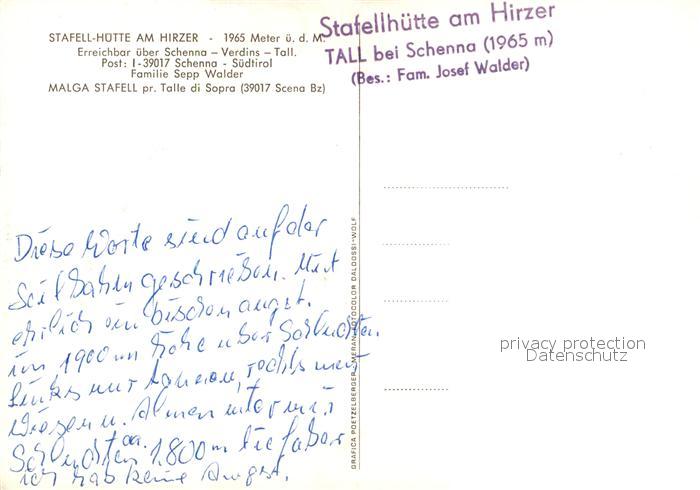 STAFELL-HÜTTE AM HIRZER - 1965 Meter ü. d. M.
Erreichbar über Schenna – Verdins – Tall.
Post: I-39017 Schenna - Südtirol
Familie Sepp Walder
MALGA STAFELL pr. Talle di Sopra (39017 Scena Bz)
Stafellhütte am Hirzer
TALL bei Schenna (1965 m)
(Bes.: Fam. Josef Walder)
Diese Worte sind auf der
Seilbahn geschrieben. Mit
ehrlich ein bischen angst.
in 1900 m Höhe über Schluchten
links nur Tannen, rechts nur
Wiesen u. Almen unter mir
Schluchten ca. 1.800 m tief aber
ich hab keine Angst.
GRAFICA POETZELBERGER, MERAN FOTOCOLOR DALDOSSI-WOLF
privacy protection
Datenschutz